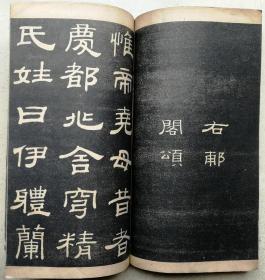 右郙
閣頌
惟帝堯母昔者
慶都兆舍穹精
氏姓曰伊體蘭